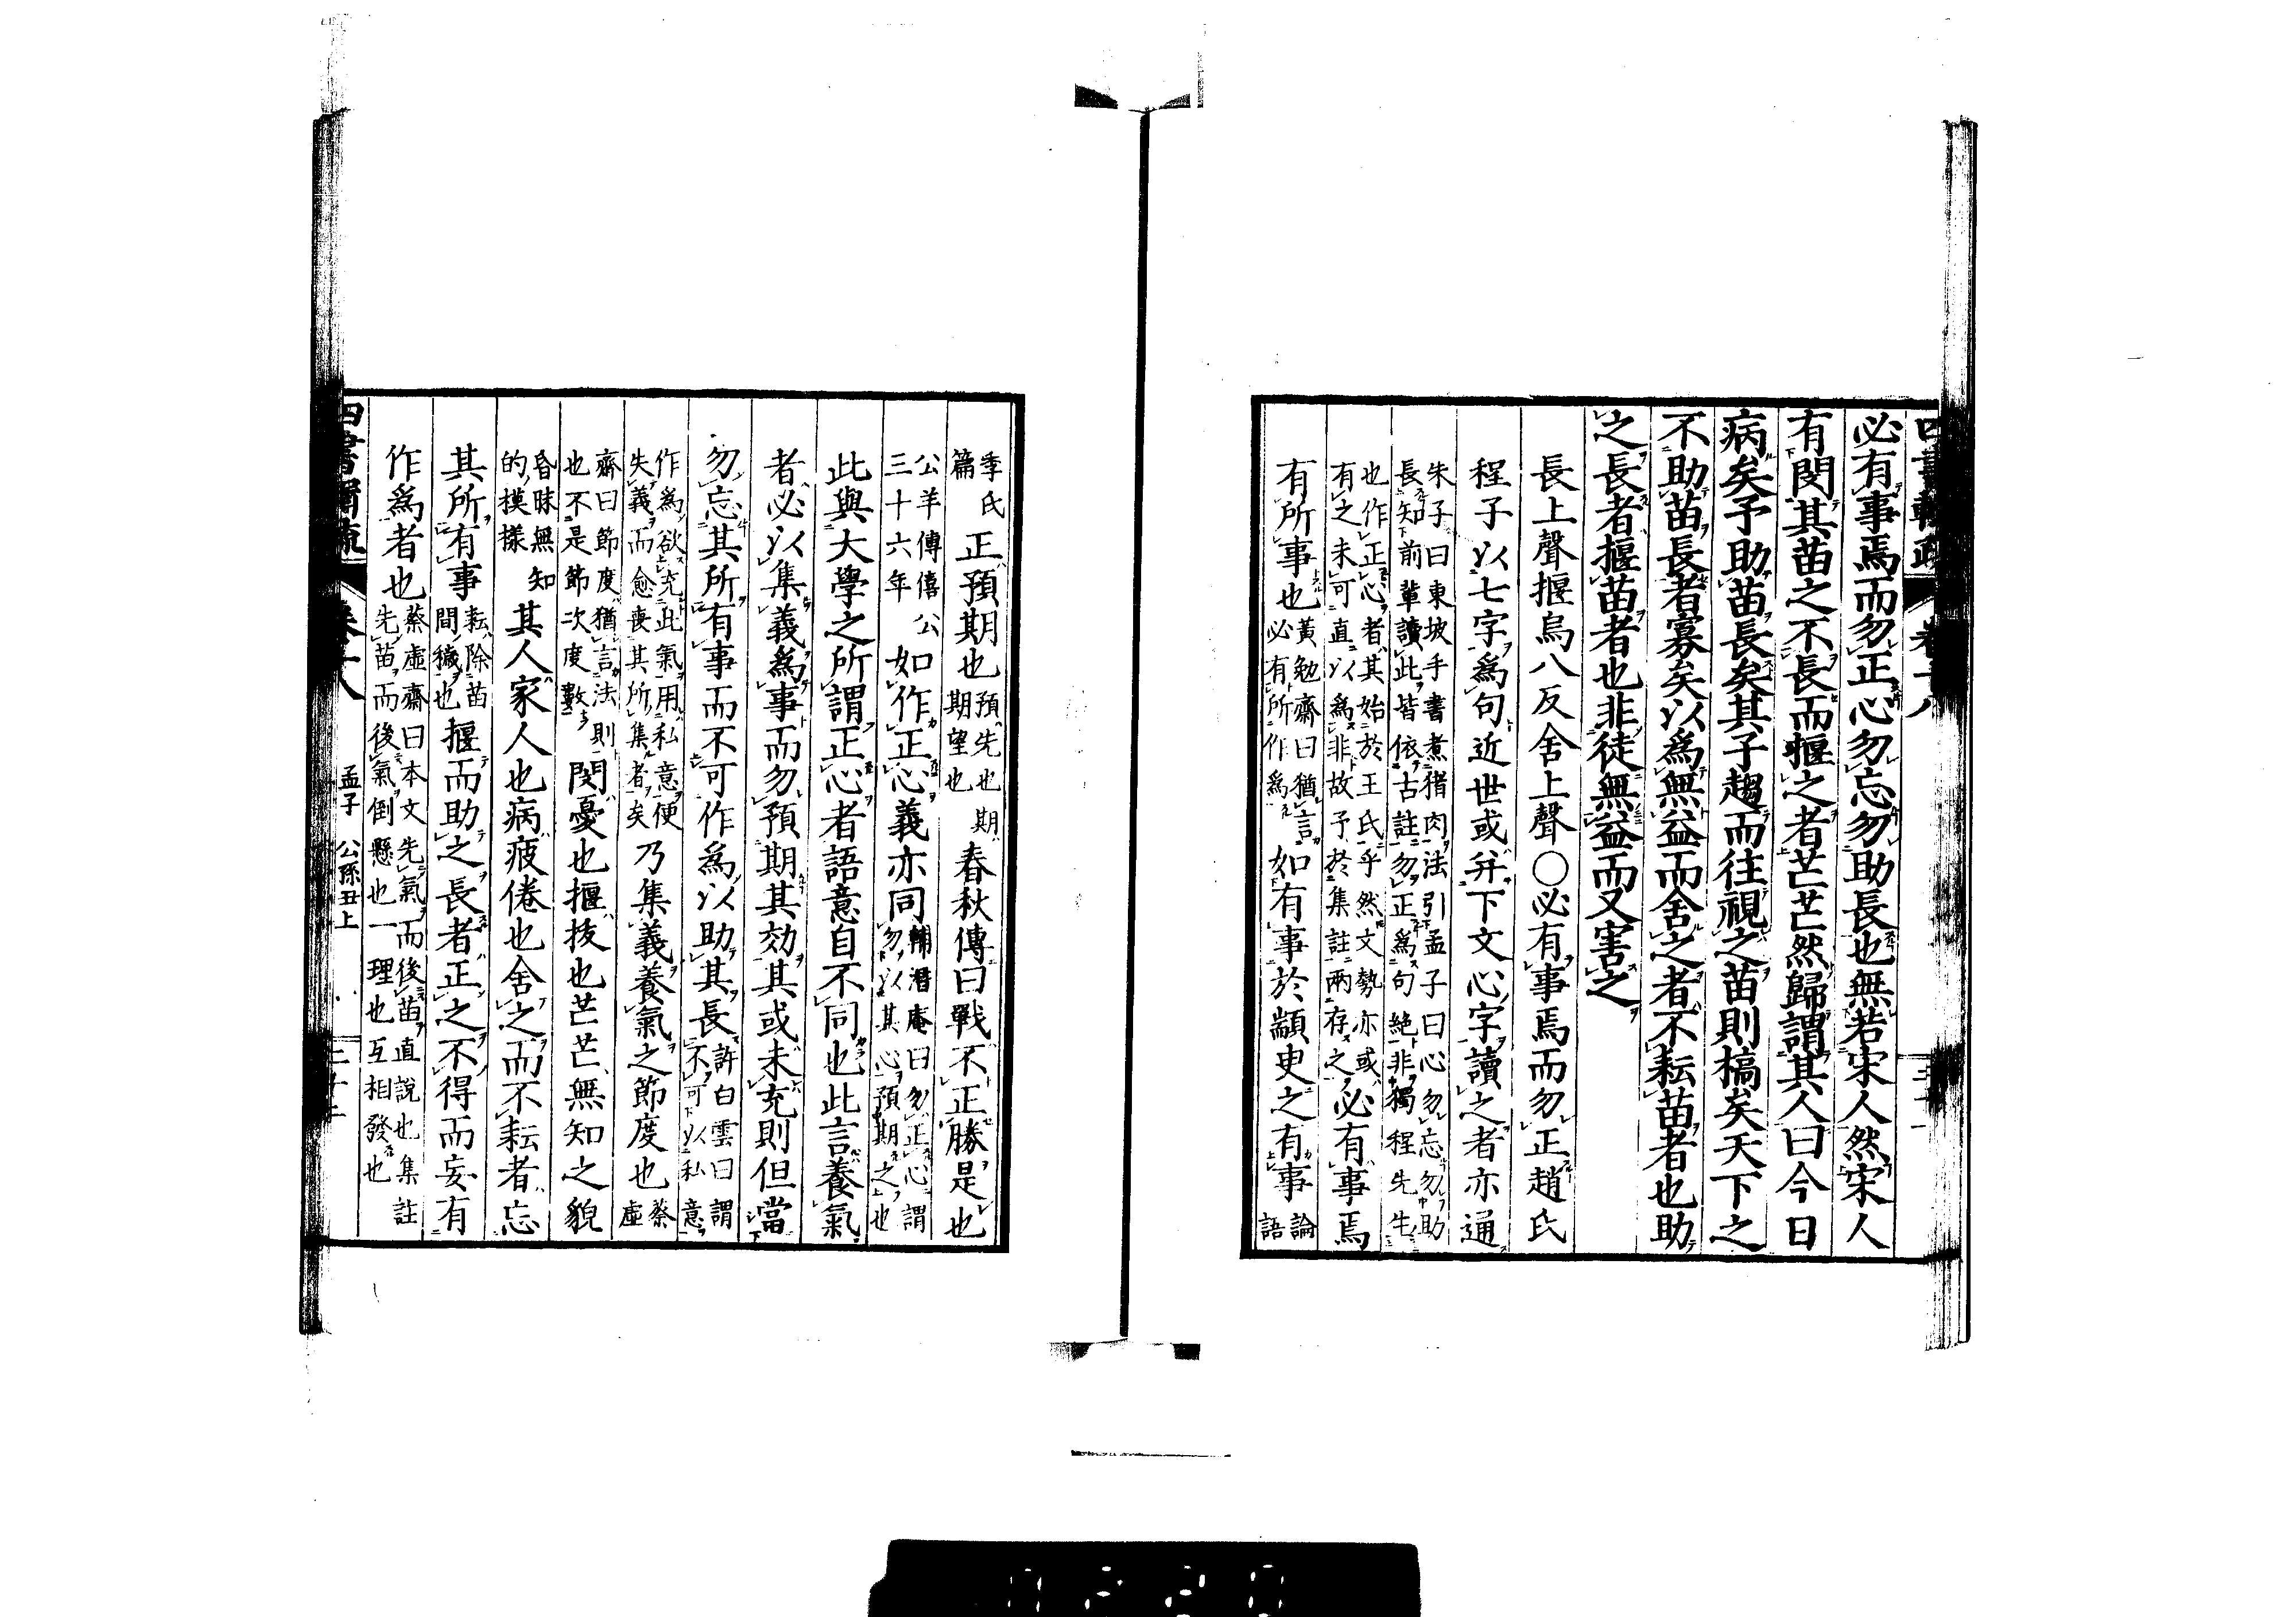 必有事焉而勿正心勿忘勿助長也無若宋人然宋人
有閔其苗之不長而揠之者芒芒然歸謂其人曰今日
病矣予助苗長矣其子趨而往視之苗則槁矣天下之
不助苗長者寡矣以爲無益而舍之者不耘苗者也助
之長者揠苗者也非徒無益而又害之
長上聲揠烏八反舍上聲○必有事焉而勿正趙氏
程子以七字爲句近世或并下文心字讀之者亦通
朱子曰東坡手書煮猪肉法引孟子曰心勿忘勿助
長知前輩讀此皆依古註勿正爲句絶非獨程先生
也作正心者其始於王氏乎然文勢亦或
有之未可直以爲非故予於集註兩存之必有事焉
有所事也黃勉齋曰猶言
必有所作爲如有事於顓臾之有事論
語
季氏
篇正預期也預先也期
期望也春秋傳曰戰不正勝是也
公羊傳僖公
三十六年如作正心義亦同輔潛庵曰勿正心謂
勿以其心預期之也
此與大學之所謂正心者語意自不同也此言養氣
者必以集義爲事而勿預期其効其或未充則但當
勿忘其所有事而不可作爲以助其長許白雲曰謂
不可以私意
作爲欲充此氣用私意便
失義而愈喪其所集者矣乃集義養氣之節度也蔡
虛
齋曰節度猶言法則
也不是節次度數閔憂也揠拔也芒芒無知之貌
昏昧無知
的模樣其人家人也病疲倦也舍之而不耘者忘
其所有事耘除苗
間穢也揠而助之長者正之不得而妄有
作爲者也蔡虛齋曰本文先氣而後苗直說也集註
先苗而後氣倒懸也一理也互相發也
孟子 公孫丑上